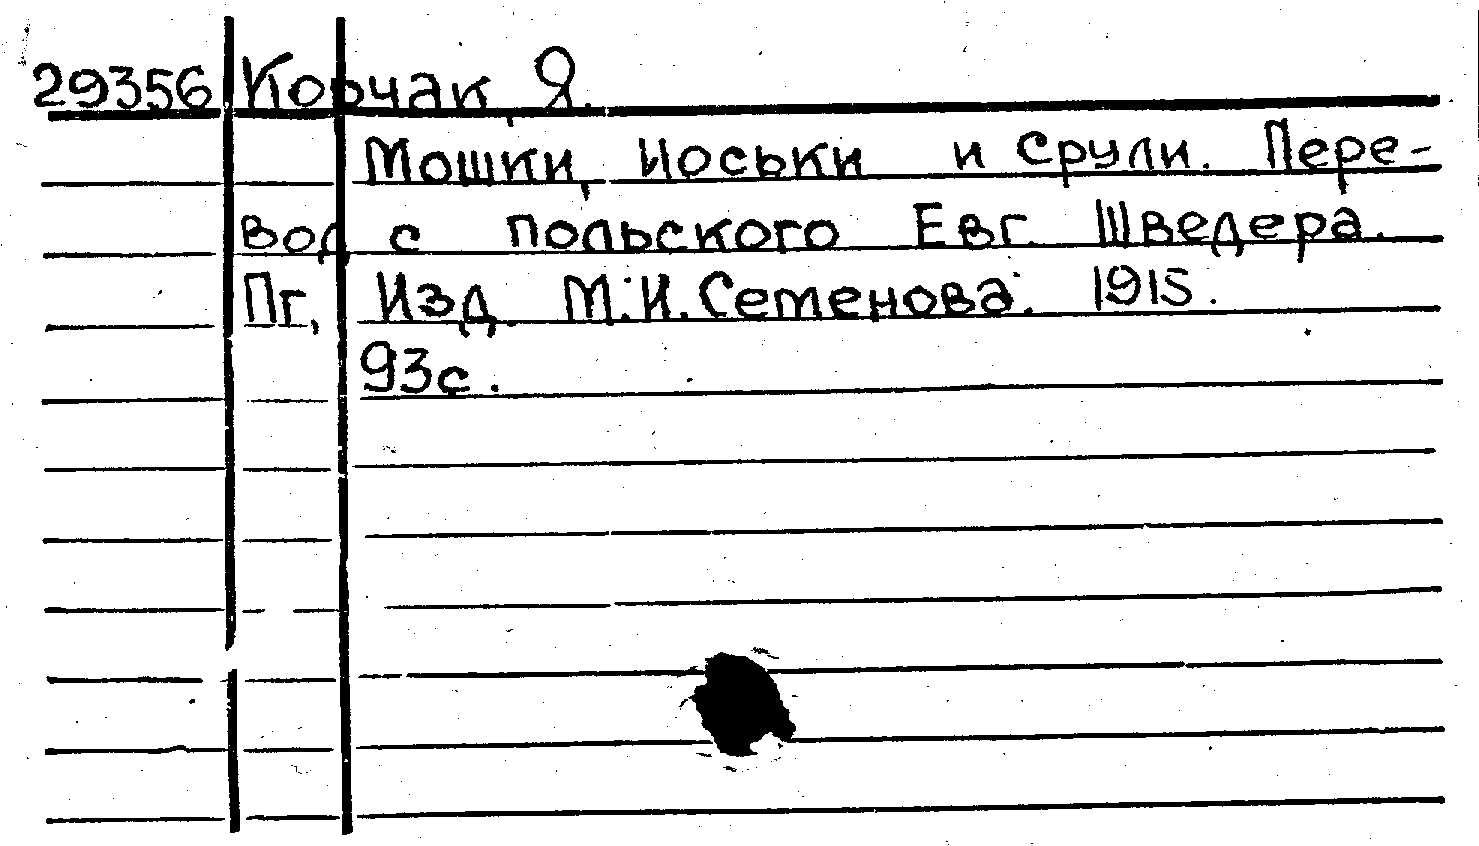 29356 Корчак, Я.
Мошки, Иоськи и Срули. Пере-
вод с польского Евг. Шведера.
Пг., Изд. М.И.Семенова. 1915.
93с.